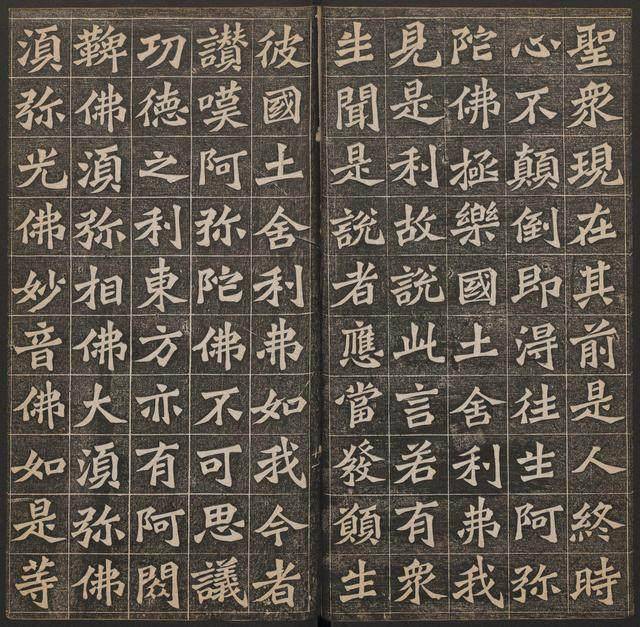 聖衆現在其前是人終時
心不顛倒即得往生阿弥
陀佛極樂國土舍利弗我
見是利故説此言若有衆
生聞是説者應當發願生
彼國土舍利弗如我今者
讃嘆阿弥陀佛不可思議
功徳之利東方亦有阿閦
鞞佛湏弥相佛大湏弥佛
湏弥光佛妙音佛如是等